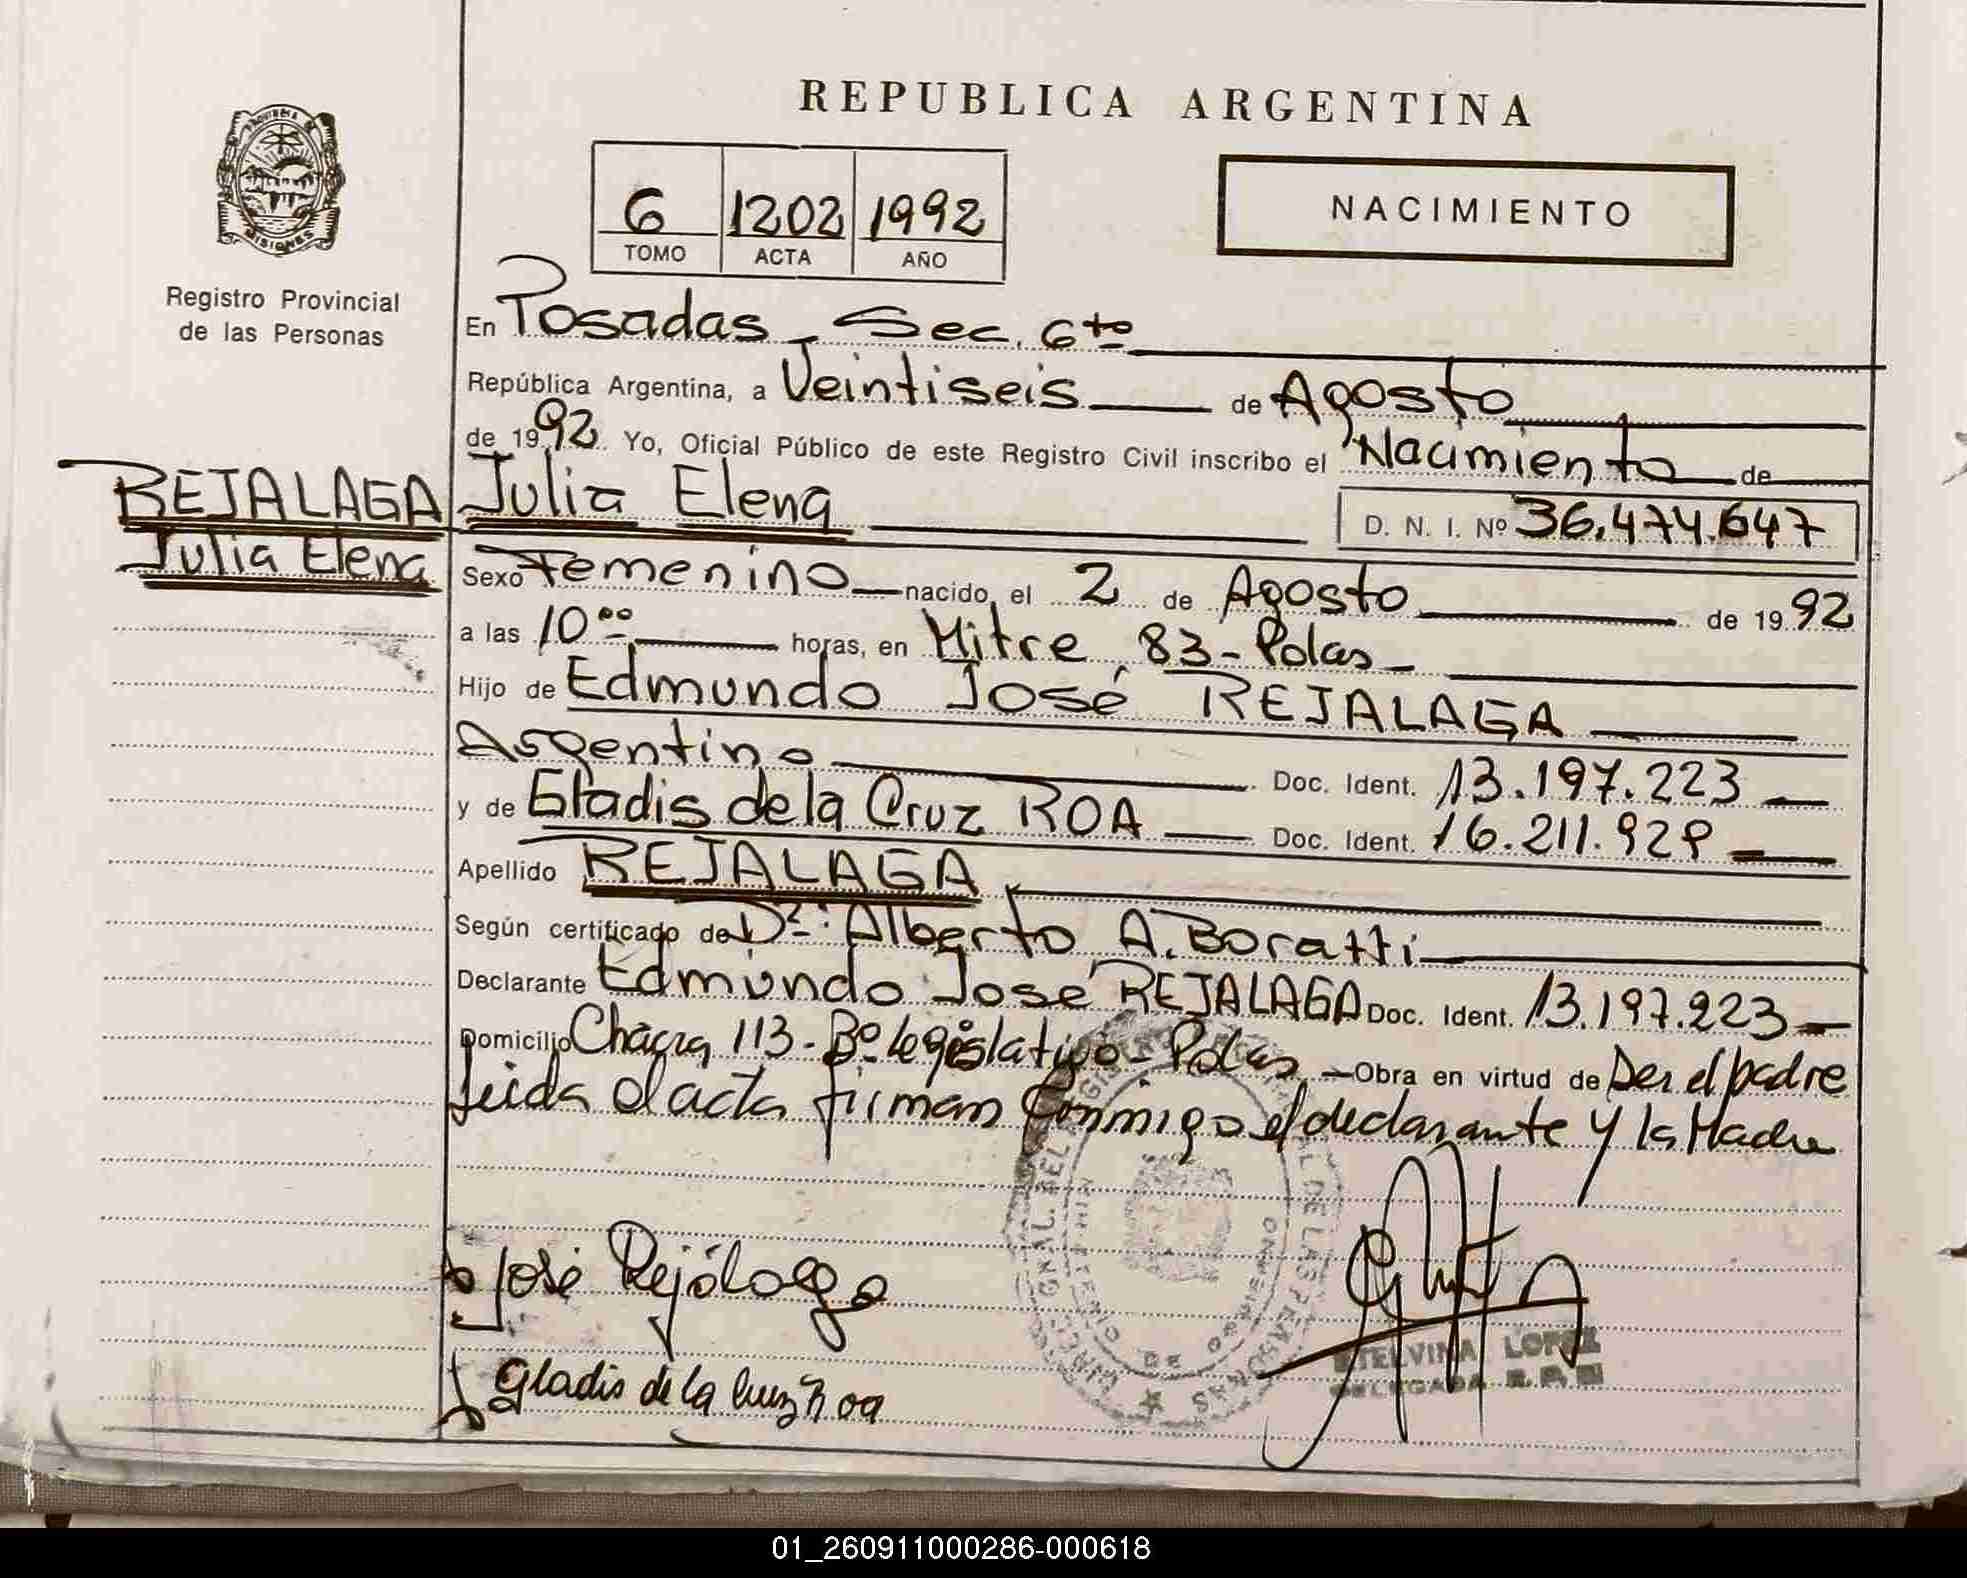 REPUBLICA ARGENTINA
PROVINCIA DE
MISIONES
Registro Provincial
de las Personas
6 1202 1992
TOMO ACTA AÑO
NACIMIENTO
En Posadas - Sec. 6ta
República Argentina, a Veintiseis de Agosto
de 1992 Yo, Oficial Público de este Registro Civil inscribo el Nacimiento de
REJALAGA
Julia Elena
Julia Elena
D. N. I. Nº 36.474.647
Sexo Femenino nacido, el 2 de Agosto de 1992
a las 10ºº horas, en Mitre 83 - Pdas -
Hijo de Edmundo José REJALAGA
Argentino Doc. Ident. 13.197.223
y de Gladis de la Cruz ROA Doc. Ident. 16.211.929
Apellido REJALAGA
Según certificado de Dr. Alberto A. Boratti
Declarante Edmundo José REJALAGA Doc. Ident. 13.197.223
Domicilio Chacra 113 - Bº Legislativo - Pdas - Obra en virtud de Ser el padre
Leida el acta firman conmigo el declarante y la Madre
José Rejálaga
Gladis de la Cruz Roa
ETELVINA LOPEZ
DELEGADA R. P. P.
01_260911000286-000618